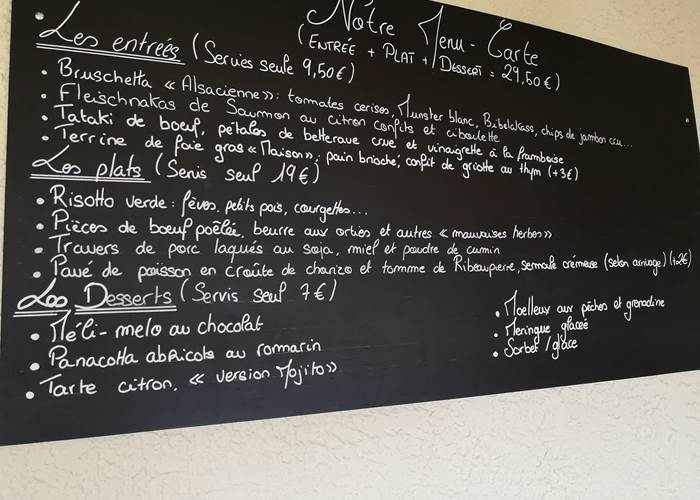 Nôtre Menu - Carte
(ENTRÉE + PLAT + DESSERT = 29,50€)
Les entrées (Servies seule 9,50€)
• Bruschetta « Alsacienne » : tomates cerises, Munster blanc, Bibelakass, chips de jambon cru...
• Fleischnakas de Saumon au citron confits et ciboulette
• Tataki de boeuf, pétales de betterave crue et vinaigrette à la framboise
• Terrine de foie gras « Maison », pain brioché, confit de griotte au thym (+3€)
Les plats (Servis seul 19€)
• Risotto verde : fèves, petits pois, courgettes...
• Pièces de boeuf poêlée, beurre aux orties et autres « mauvaises herbes »
• Travers de porc laqués au soja, miel et poudre de cumin
• Pavé de poisson en croûte de chorizo et tomme de Ribeaupierre, semoule crémeuse (selon arrivage) (+2€)
Les Desserts (Servis seul 7€)
• Méli-melo au chocolat
• Panacotta abricots au romarin
• Tarte citron, « version Mojito »
• Moelleux aux pêches et grenadine
• Meringue glacée
• Sorbet / glace